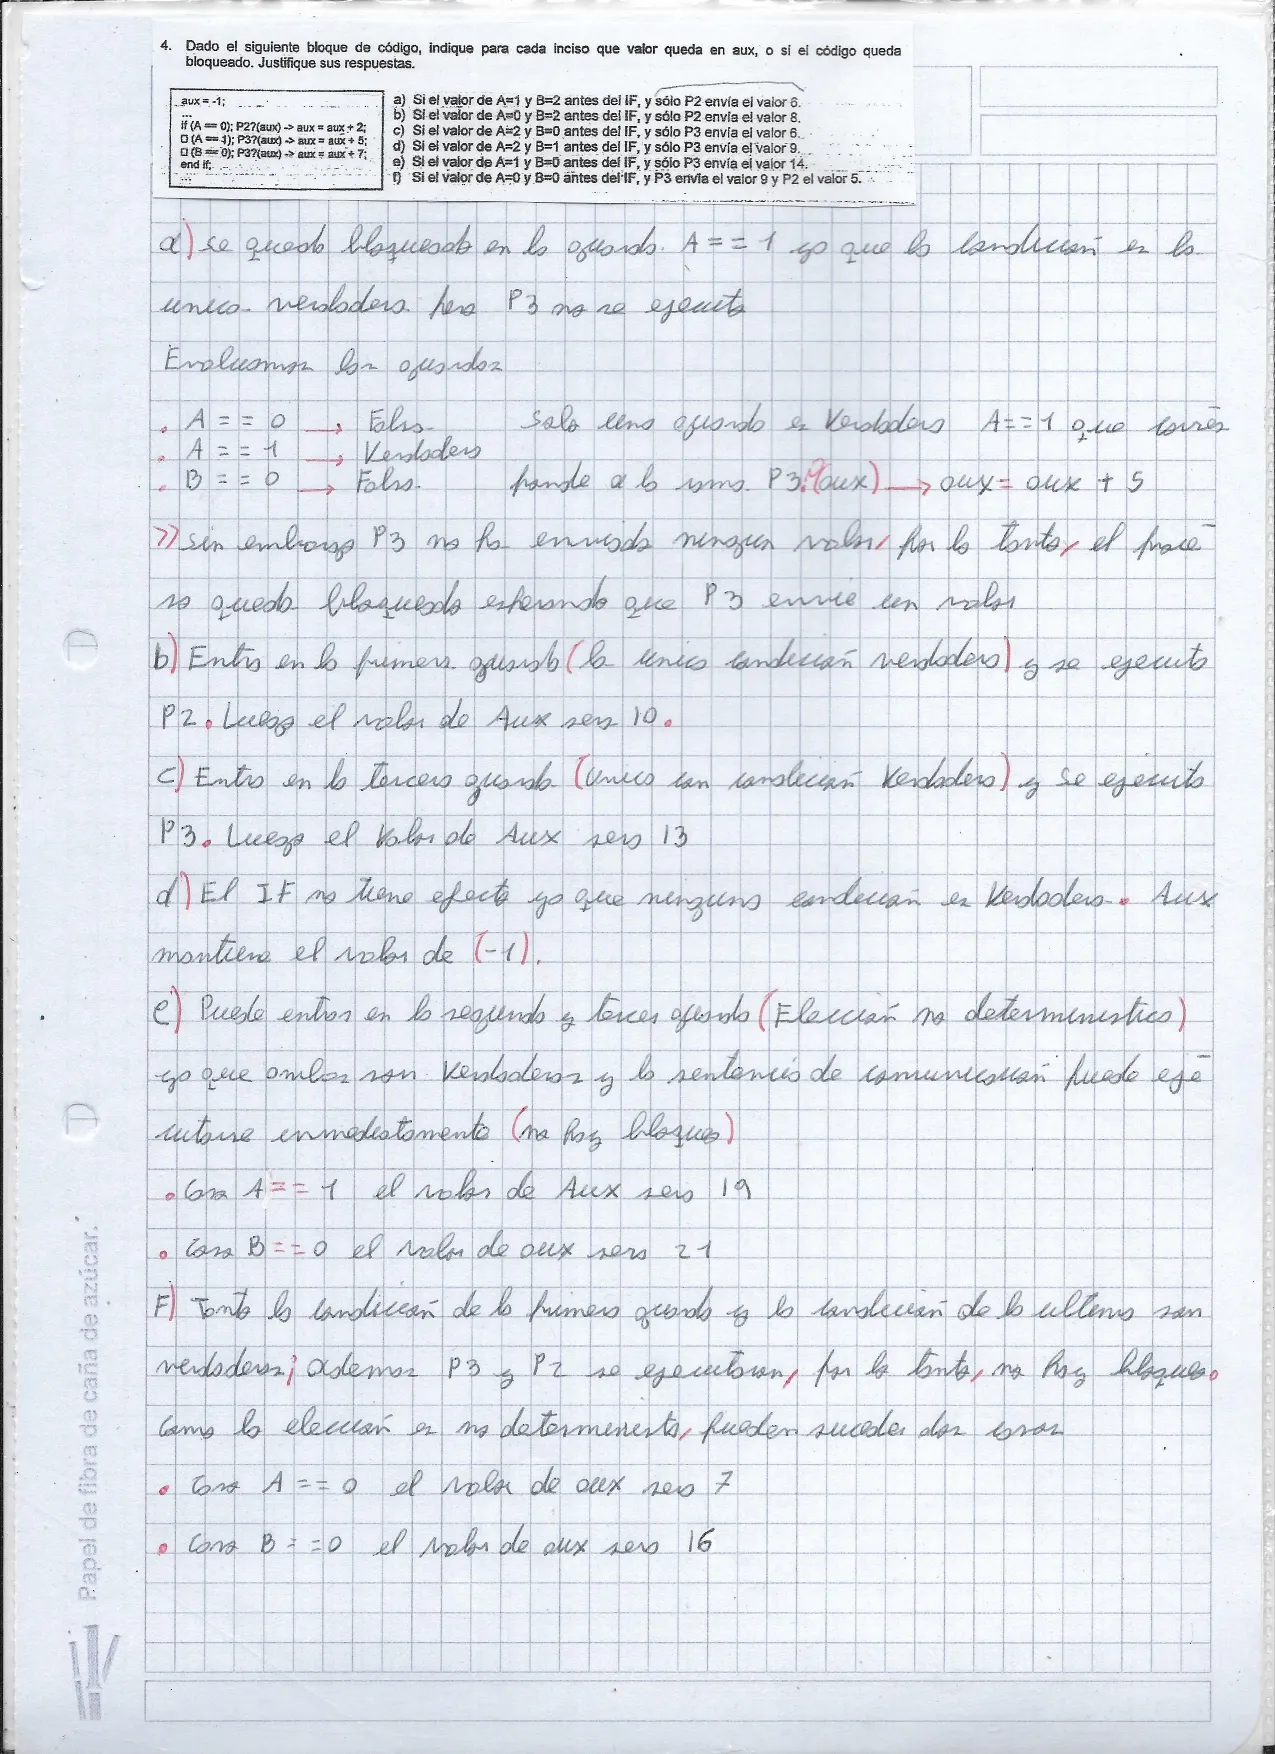 4. Dado el siguiente bloque de código, indique para cada inciso que valor queda en aux, o si el código queda
bloqueado. Justifique sus respuestas.
aux = -1;
...
if (A == 0); P2?(aux) -> aux = aux + 2;
□ (A == 1); P3?(aux) -> aux = aux + 5;
□ (B == 0); P3?(aux) -> aux = aux + 7;
end if;
...
a) Si el valor de A=1 y B=2 antes del IF, y sólo P2 envía el valor 6.
b) Si el valor de A=0 y B=2 antes del IF, y sólo P2 envía el valor 8.
c) Si el valor de A=2 y B=0 antes del IF, y sólo P3 envía el valor 6.
d) Si el valor de A=2 y B=1 antes del IF, y sólo P3 envía el valor 9.
e) Si el valor de A=1 y B=0 antes del IF, y sólo P3 envía el valor 14.
f) Si el valor de A=0 y B=0 antes del IF, y P3 envía el valor 9 y P2 el valor 5.
a) se queda bloqueado en la guarda A == 1 ya que la condición es la
unica verdadera pero P3 no se ejecuta
Evaluamos las guardas
. A == 0 → Falso Solo una guarda es Verdadera A==1 que corres
. A == 1 → Verdadero
. B == 0 → Falso. ponde a la rama P3?(aux) → aux = aux + 5
>> sin embargo P3 no ha enviado ningun valor, por lo tanto, el proce
so queda bloqueado esperando que P3 envie un valor
b) Entra en la primera guarda (la unica condición verdadera) y se ejecuta
P2. Luego el valor de Aux sera 10.
c) Entra en la tercera guarda (unica con condición Verdadera) y Se ejecuta
P3. Luego el Valor de Aux sera 13
d) El IF no tiene efecto ya que ninguna condición es Verdadera. Aux
mantiene el valor de (-1).
e) Puede entrar en la segunda y tercer guarda (Elección no deterministica)
ya que ambas son Verdaderas y la sentencia de comunicación puede eje
cutarse inmediatamente (no hay bloqueo)
. Caso A == 1 el valor de Aux sera 19
. Caso B == 0 el valor de aux sera 21
F) Tanto la condición de la primera guarda y la condición de la ultima son
verdaderas; ademas P3 y P2 se ejecutaran, por lo tanto, no hay bloqueo.
Como la elección es no determinista, pueden suceder dos cosas
. Caso A == 0 el valor de aux sera 7
. Caso B == 0 el valor de aux sera 16
Papel de fibra de caña de azúcar.